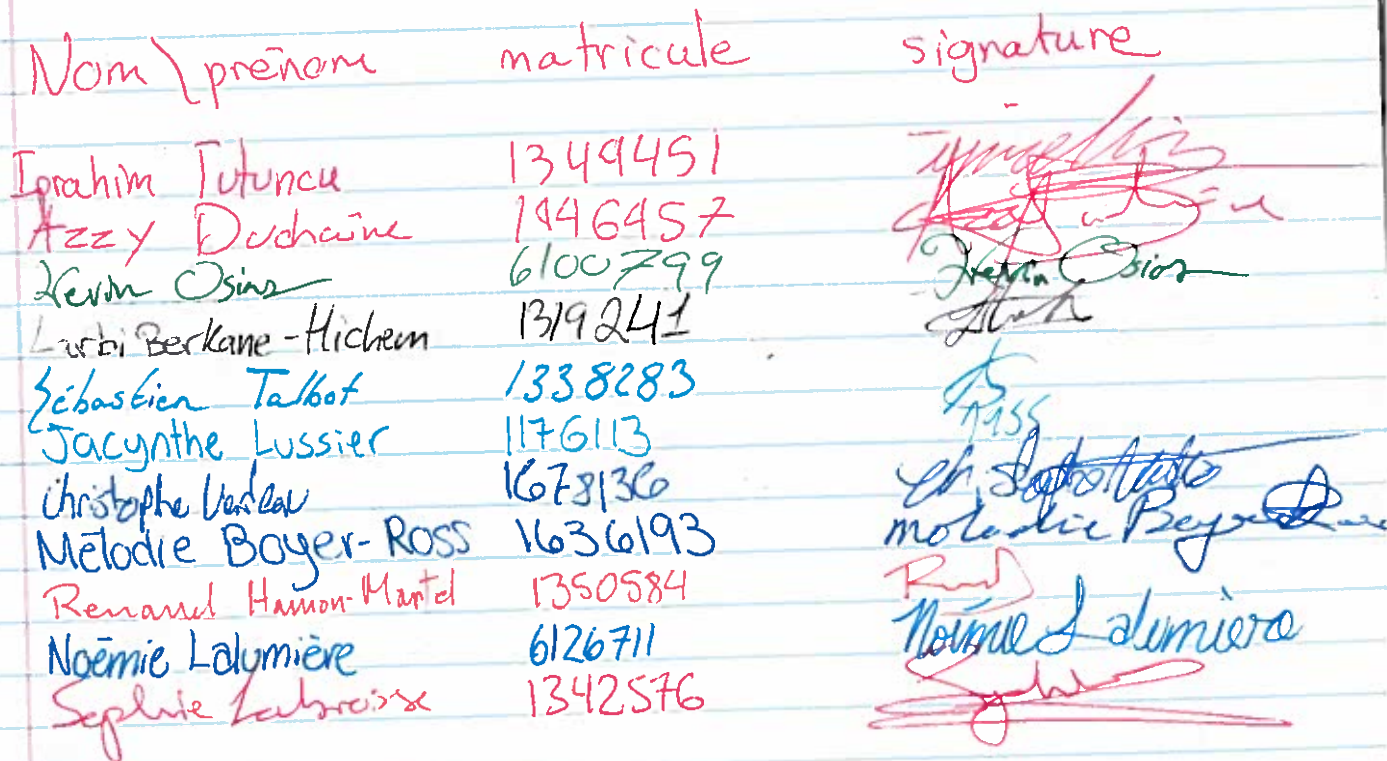 Nom \ prénom matricule signature
Iprahim Tutuncu 1349451
Azzy Duchaine 1446457
Kevin Osias 6100799 Kevin Osias
Larbi Berkane-Hichem 1319241
Sébastien Talbot 1338283
Jacynthe Lussier 1176113
Christophe 1678136
Mélodie Boyer-Ross 1636193
Renaud Hamon-Martel 1350584
Noémie Lalumière 6126711 Noémie Lalumière
Sophie Labreisse 1342576